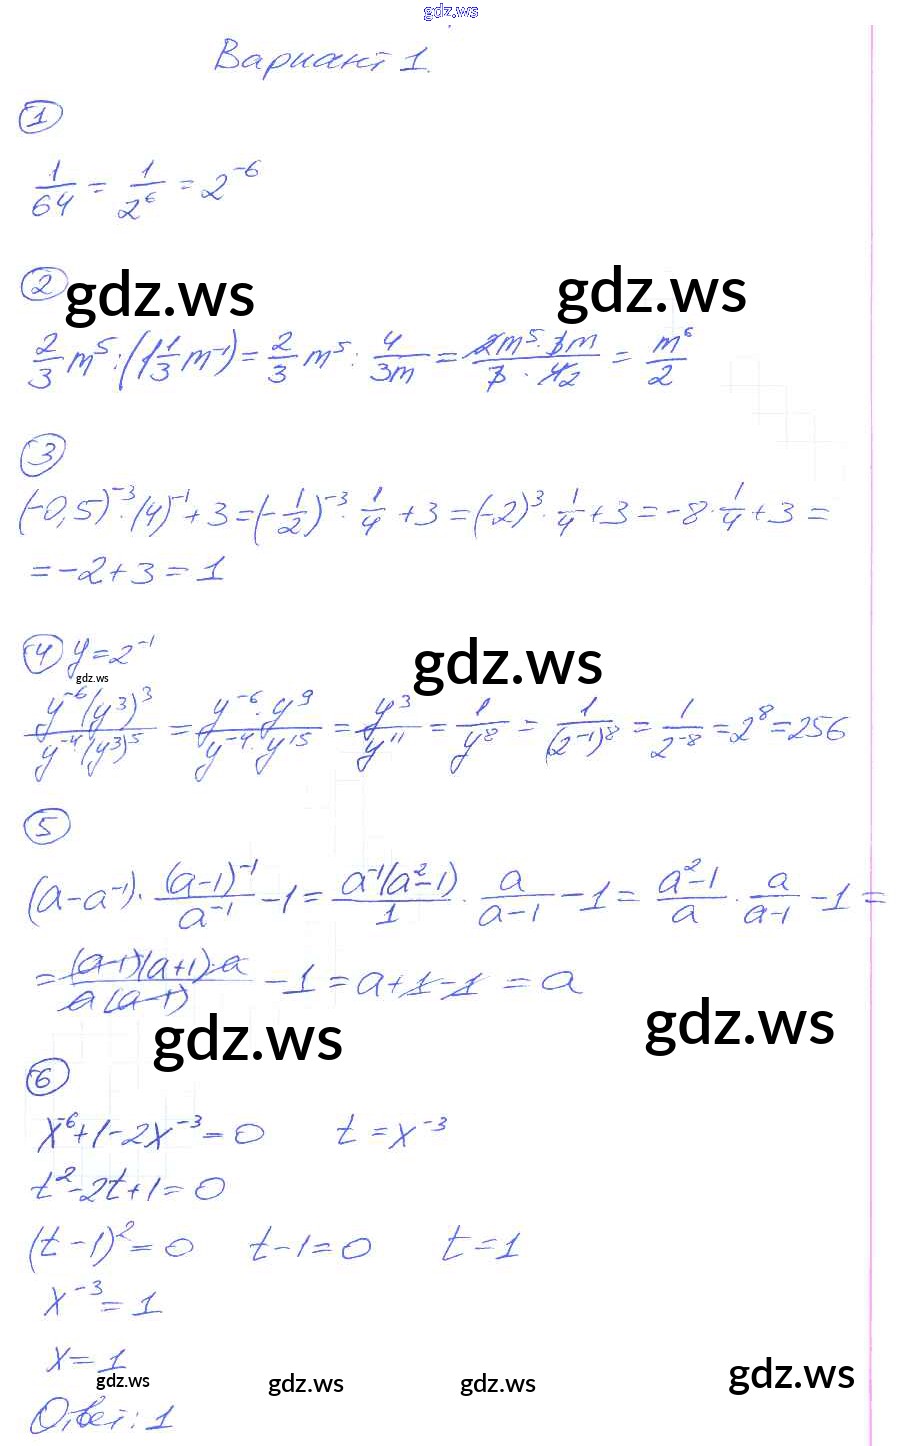 gdz.ws
Вариант 1.
1
1/64 = 1/2⁶ = 2⁻⁶
2 gdz.ws gdz.ws
2/3 m⁵ : (1 1/3 m⁻¹) = 2/3 m⁵ : 4/3m = 2m⁵ · 3m / 3 · 4 2 = m⁶/2
3
(-0,5)⁻³ · (4)⁻¹ + 3 = (-1/2)⁻³ · 1/4 + 3 = (-2)³ · 1/4 + 3 = -8 · 1/4 + 3 =
= -2 + 3 = 1
4 y = 2⁻¹ gdz.ws
gdz.ws
y⁻⁶(y³)³ / y⁻⁴·(y³)⁵ = y⁻⁶·y⁹ / y⁻⁴·y¹⁵ = y³/y¹¹ = 1/y⁸ = 1/(2⁻¹)⁸ = 1/2⁻⁸ = 2⁸ = 256
5
(a - a⁻¹) · (a-1)⁻¹/a⁻¹ - 1 = a⁻¹(a²-1)/1 · a/a-1 - 1 = a²-1/a · a/a-1 - 1 =
= (a-1)(a+1)·a / a(a-1) - 1 = a + 1 - 1 = a
gdz.ws gdz.ws
6
x⁻⁶ + 1 - 2x⁻³ = 0 t = x⁻³
t² - 2t + 1 = 0
(t - 1)² = 0 t - 1 = 0 t = 1
x⁻³ = 1
x = 1
gdz.ws gdz.ws gdz.ws gdz.ws
Ответ: 1